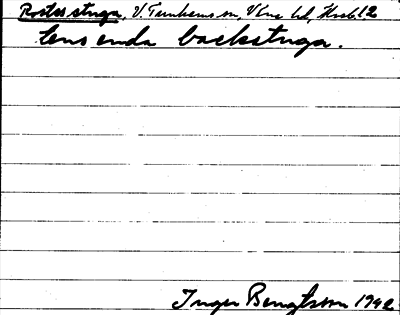 Rosters stuga, V. Tunhems sn, V-ne hd, Husb. 12
tens enda backstuga.
Inger Bengtsson 1942